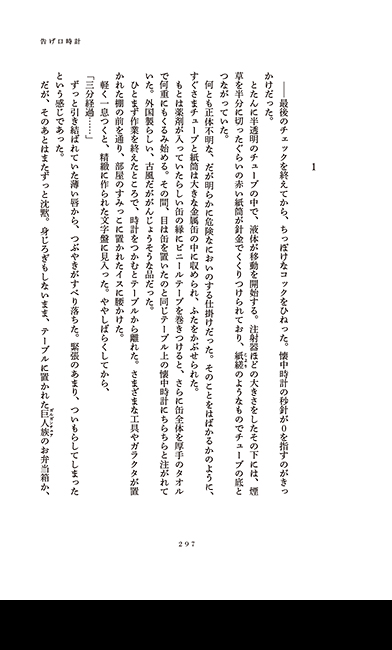 告げ口時計
1
――最後のチェックを終えてから、ちっぽけなコックをひねった。懐中時計の秒針が0を指すのがきっ
かけだった。
とたんに半透明のチューブの中で、液体が移動を開始する。注射器ほどの大きさをしたその下には、煙
草を半分に切ったぐらいの赤い紙筒が針金でくくりつけられており、紙縒のようなものでチューブの底と
つながっていた。
何とも正体不明な、だが明らかに危険なにおいのする仕掛けだった。そのことをはばかるかのように、
すぐさまチューブと紙筒は大きな金属缶の中に収められ、ふたをかぶせられた。
もとは薬剤が入っていたらしい缶の縁にビニールテープを巻きつけると、さらに缶全体を厚手のタオル
で何重にもくるみ始める。その間、目は缶を置いたのと同じテーブル上の懐中時計にちらちらと注がれて
いた。外国製らしい、古風だががんじょうそうな品だった。
ひとまず作業を終えたところで、時計をつかむとテーブルから離れた。さまざまな工具やガラクタが置
かれた棚の前を通り、部屋のすみっこに置かれたイスに腰かけた。
軽く一息つくと、精緻に作られた文字盤に見入った。ややしばらくしてから、
「三分経過……」
ずっと引き結ばれていた薄い唇から、つぶやきがすべり落ちた。緊張のあまり、ついもらしてしまった
という感じであった。
だが、そのあとはまたずっと沈黙。身じろぎもしないまま、テーブルに置かれた巨人族のお弁当箱か、
297